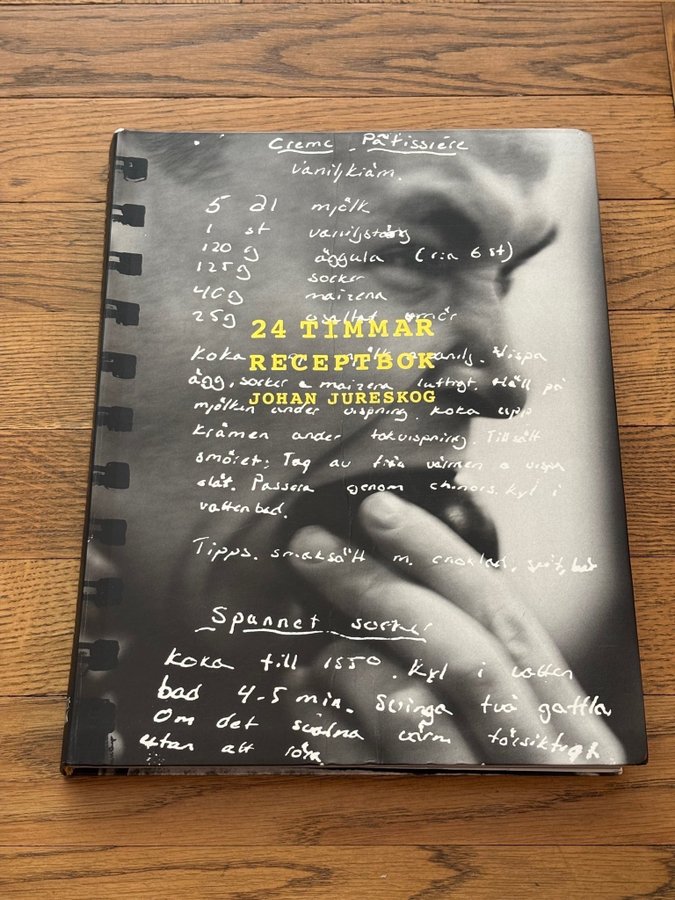 Creme Pâtissiére
Vaniljkräm.
5 dl mjölk
1 st vaniljstång
120 g äggula (c:a 6 st)
125g socker
40g maizena
25g osaltat smör
24 TIMMAR
RECEPTBOK
JOHAN JURESKOG
Koka mjölk vanilj. Vispa
ägg, socker & maizena luftigt. Häll på
mjölken under vispning. Koka upp
krämen under tokvispning. Tillsätt
smöret. Tag av från värmen o vispa
slät. Passera genom chinois. Kyl i
vattenbad.
Tipps. smaksätt m. choklad, sprit, bär
Spunnet socker
Koka till 155°. Kyl i vatten
bad 4-5 min. Svinga två gafflar
Om det svalna värm försiktigt
utan att röra